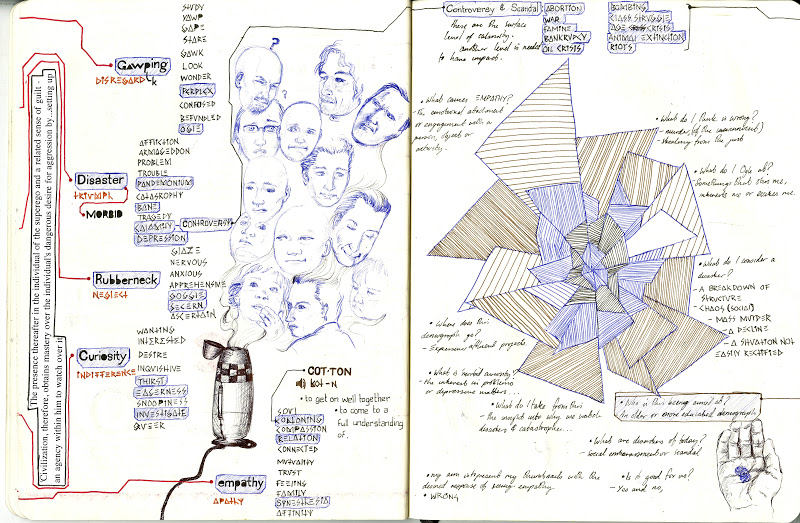 Civilization, therefore, obtains mastery over the individual's dangerous desire for aggression by...setting up
an agency within him to watch over it
The presence thereafter in the individual of the superego and a related sense of guilt -
Gawping
DISREGARD
STUDY
YAWP
GAPE
STARE
GAWK
LOOK
WONDER
PERPLEX
CONFUSED
BEFUDDLED
OGLE
Disaster
TRIUMPH
MORBID
AFFLICTION
ARMAGEDDON
PROBLEM
TROUBLE
PANDEMONIUM
CATASTROPHY
BANE
TRAGEDY
CALAMITY
CONTROVERSY
DEPRESSION
Rubberneck
NEGLECT
GLAZE
NERVOUS
ANXIOUS
APPREHENSIVE
GOGGLE
DISCERN
ASCERTAIN
Curiosity
INDIFFERENCE
WANTING
INTERESTED
DESIRE
INQUISITIVE
THIRST
EAGERNESS
SNOOPINESS
INVESTIGATE
QUEER
empathy
APATHY
?
?
COT·TON
• to get on well together
• to come to a
full understanding
of.
SOUL
COMPASSION
RELATION
CONNECTED
MUTUALITY
TRUST
FEELING
FAMILY
SYNESTHESIA
AFFINITY
Controversy & Scandal
these are the surface
level of calamity.
another level is needed
to have impact.
ABORTION
WAR
FAMINE
BANKRUPCY
OIL CRISIS
BOMBING
CLASS STRUGGLE
AGE CRISIS
ANIMAL EXTINCTION
RIOTS
• What causes EMPATHY?
- The emotional attachment
or engagement with a
person, object or
activity.
• What do I think is wrong?
- murder, (of the innocent)
- stealing from the poor
• What do I Ogle at?
Somethings that stun me,
interests me or excites me.
• What do I consider a
disaster?
- A BREAKDOWN OF
STRUCTURE
- CHAOS (SOCIAL)
- MASS MURDER
- A DECLINE
- A SITUATION NOT
EASILY RECTIFIED
• Where does this
demograph go?
- Expensive affluent projects.
• What is morbid curiosity?
- the interest in problems
or depressive matters...
• What do I take from this
- the insight into why we watch
disasters & catastrophe...
• Who is this being aimed at?
An older or more educated demograph
• What are disasters of today?
- Social embarrassment or scandal
• Is it good for me?
- Yes and no,
• my aim is to present my thumbnails with the
desired response of being empathy
• WRONG